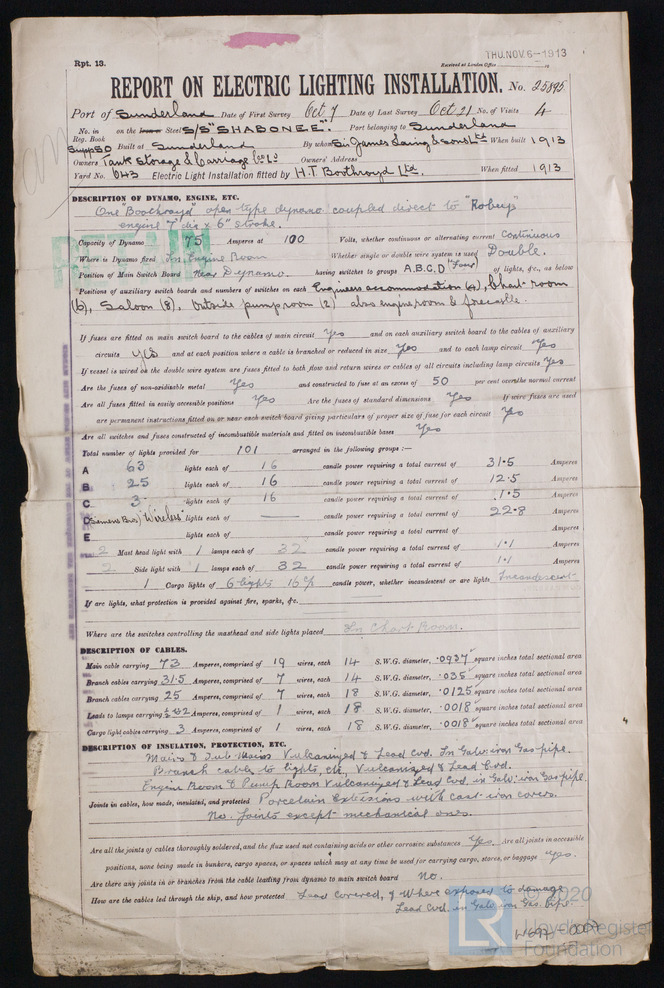 THU. NOV. 6 - 1913
Rpt. 13.
Received at London Office
REPORT ON ELECTRIC LIGHTING INSTALLATION. No. 25895
Port of Sunderland Date of First Survey Oct 7 Date of Last Survey Oct 21 No. of Visits 4
No. in Reg. Book on the Iron or Steel S/S "SHABONEE". Port belonging to Sunderland
Supp 50 Built at Sunderland By whom Sir James Laing & Sons Ltd When built 1913
Owners Tank Storage & Carriage Co Ld Owners' Address
Yard No. 643 Electric Light Installation fitted by H.T. Boothroyd Ltd. When fitted 1913
DESCRIPTION OF DYNAMO, ENGINE, ETC.
One "Boothroyd" open type dynamo coupled direct to "Robeys"
engine 7" dia x 6" stroke.
Capacity of Dynamo 75 Amperes at 100 Volts, whether continuous or alternating current Continuous
Where is Dynamo fixed In Engine Room Whether single or double wire system is used Double.
Position of Main Switch Board Near Dynamo. having switches to groups A, B, C, D "Four" of lights, &c., as below
Positions of auxiliary switch boards and numbers of switches on each Engineers accommodation (4), Chart room
(6), Saloon (8), Outside pumproom (2) also engineroom & forecastle.
If fuses are fitted on main switch board to the cables of main circuit Yes and on each auxiliary switch board to the cables of auxiliary
circuits yes and at each position where a cable is branched or reduced in size Yes and to each lamp circuit Yes
If vessel is wired on the double wire system are fuses fitted to both flow and return wires or cables of all circuits including lamp circuits Yes
Are the fuses of non-oxidizable metal Yes and constructed to fuse at an excess of 50 per cent over the normal current
Are all fuses fitted in easily accessible positions Yes Are the fuses of standard dimensions Yes If wire fuses are used
are permanent instructions fitted on or near each switch board giving particulars of proper size of fuse for each circuit Yes
Are all switches and fuses constructed of incombustible materials and fitted on incombustible bases Yes
Total number of lights provided for 101 arranged in the following groups :—
A 63 lights each of 16 candle power requiring a total current of 31.5 Amperes
B 25 lights each of 16 candle power requiring a total current of 12.5 Amperes
C 3. lights each of 16 candle power requiring a total current of 1.5 Amperes
D (Siemens Bros) "Wireless" lights each of — candle power requiring a total current of 22.8 Amperes
E lights each of candle power requiring a total current of Amperes
2 Mast head light with 1 lamps each of 32 candle power requiring a total current of 1.1 Amperes
2 Side light with 1 lamps each of 32 candle power requiring a total current of 1.1 Amperes
1 Cargo lights of 6 lights 16 c/p candle power, whether incandescent or arc lights Incandescent
If arc lights, what protection is provided against fire, sparks, &c.
Where are the switches controlling the masthead and side lights placed In Chart Room.
DESCRIPTION OF CABLES.
Main cable carrying 73 Amperes, comprised of 19 wires, each 14 S.W.G. diameter, .0937 square inches total sectional area
Branch cables carrying 31.5 Amperes, comprised of 7 wires, each 14 S.W.G. diameter, .035 square inches total sectional area
Branch cables carrying 25 Amperes, comprised of 7 wires, each 18 S.W.G. diameter, .0125 square inches total sectional area
Leads to lamps carrying Amperes, comprised of 1 wires, each 18 S.W.G. diameter, .0018 square inches total sectional area
Cargo light cables carrying 3 Amperes, comprised of 1 wires, each 18 S.W.G. diameter, .0018 square inches total sectional area
DESCRIPTION OF INSULATION, PROTECTION, ETC.
Mains & Sub-Mains Vulcanized & Lead Cvd. In Galv: iron Gas pipe.
Branch cable to lights, etc, Vulcanized & Lead Cvd.
Engine Room & Pump Room Vulcanized & Lead Cvd. in Galv: iron Gas pipe.
Joints in cables, how made, insulated, and protected Porcelain Extensions with cast iron covers.
No. Joints except mechanical ones.
Are all the joints of cables thoroughly soldered, and the flux used not containing acids or other corrosive substances Yes. Are all joints in accessible
positions, none being made in bunkers, cargo spaces, or spaces which may at any time be used for carrying cargo, stores, or baggage Yes.
Are there any joints in or branches from the cable leading from dynamo to main switch board No.
How are the cables led through the ship, and how protected Lead Covered, & where exposed to damage
Lead Cvd. in Galv: iron Gas. Pipe.
© 2020
Lloyd's Register
Foundation
LR